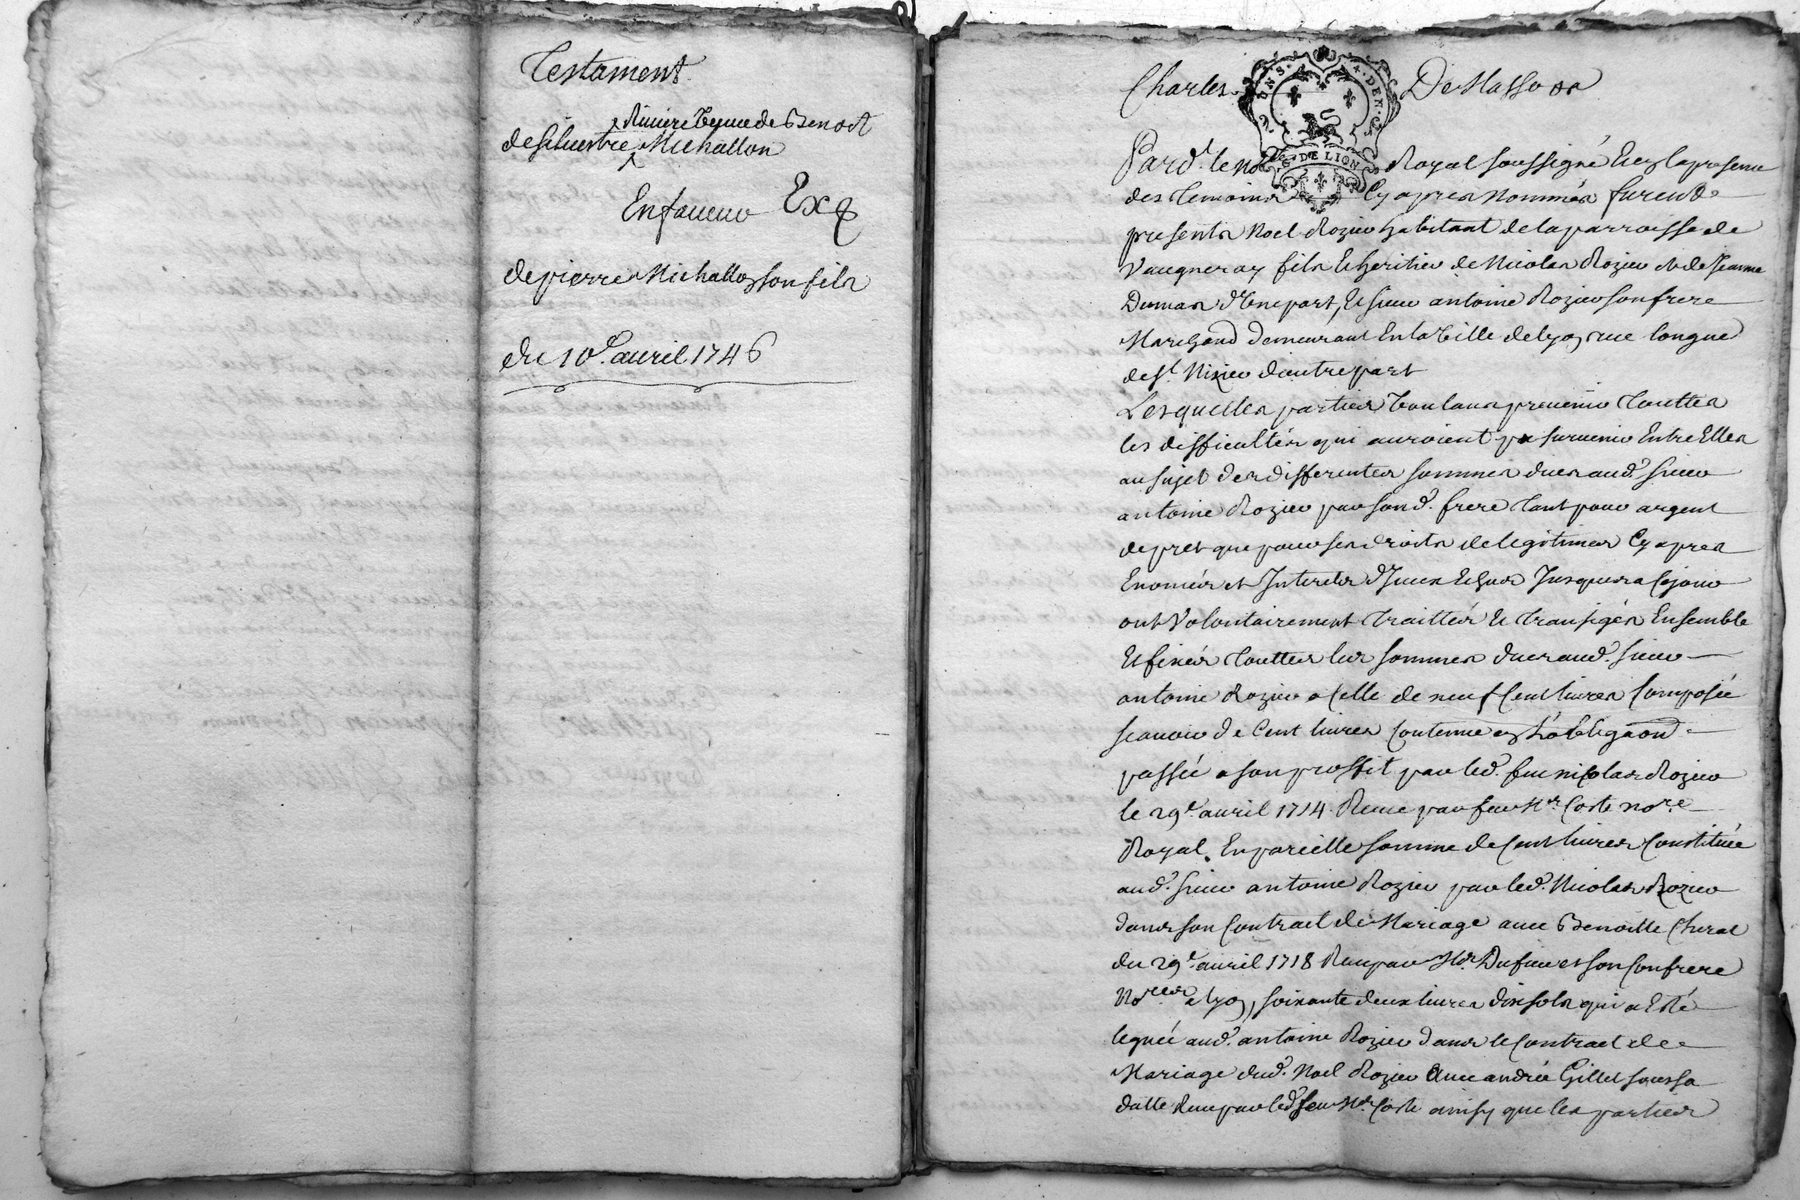 Testament
Riviere veuve de Benoit
de silvestre Michallon
En faveur Exp
de pierre Michallon son fils
du 10e. avril 1746
Charles De Masso
GNS. DE LION
Pard. le nore Royal soussigné Et en la presence
des temoins Cy apres nommés furent
presents Noel Rozier habitant de la parroisse de
Vaugneray fils & heritier de Nicolas Rozier et de Jeanne
Dumas d'Une part, & sieur antoine Rozier son frere
Marchand demeurant En la Ville de lyon rue longue
de st. Nizier d'autre part
Lesquelles parties voulans prevenir touttes
les difficultés qui auroient pu survenir Entre Elles
au sujet des differentes sommes dues aud. sieur
antoine Rozier par sond. frere tant pour argent
de pret que pour ses droits de legitimes Cy apres
Enoncés et Interets d'Iceux Echus Jusques a ce jour
ont Volontairement traittés & transigés Ensemble
& fixés touttes les sommes dues aud. sieur
antoine Rozier a celle de neuf Cent livres Composée
scavoir de Cent livres Contenue en l'obligaon
passée a son proffit par led. feu nicolas Rozier
le 29e. avril 1714. Recue par feu Mr. Coste nore.
Royal. En pareille somme de Cent livres Constituée
aud. sieur antoine Rozier par led. Nicolas Rozier
dans son Contract de Mariage avec Benoitte
du 29e. avril 1718 Recu par Me. Dufieu et son Confrere
Nores a lyon, soixante deux livres dix sols qui a Eté
leguée aud. antoine Rozier dans le Contract de
Mariage dud. Noel Rozier avec andrée Gillet sous sa
datte Recu par led. feu Me. Coste ainsy que les parties